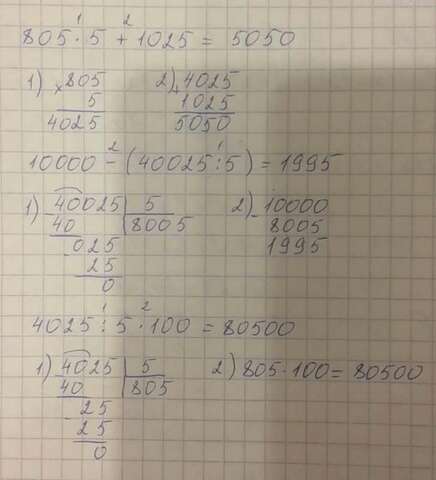 805 · 5 + 1025 = 5050
1 2
1) × 805 2) + 4025
5 1025
4025 5050
10000 - (40025 : 5) = 1995
2 1
1) - 40025 | 5 2) - 10000
40 8005 8005
- 025 1995
25
0
4025 : 5 · 100 = 80500
1 2
1) - 4025 | 5 2) 805 · 100 = 80500
40 805
- 25
25
0